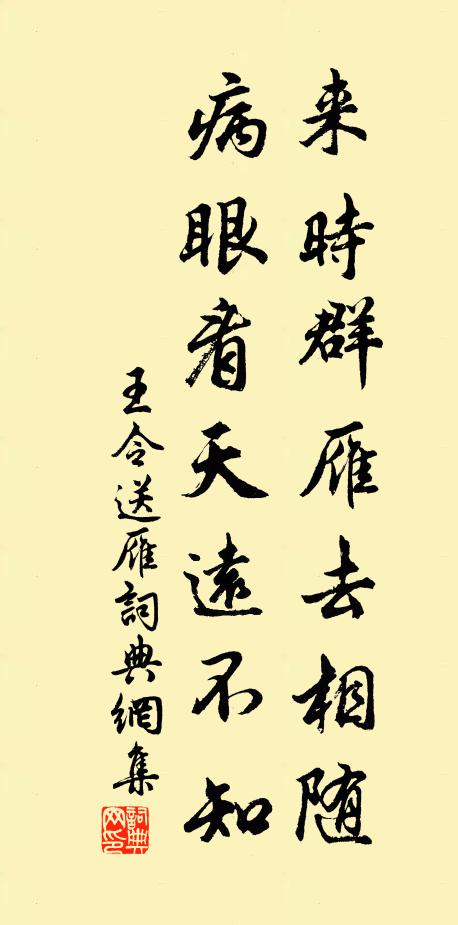 来時群雁去相随
病眼看天遠不知
王令送雁詞典網集
詞典网印